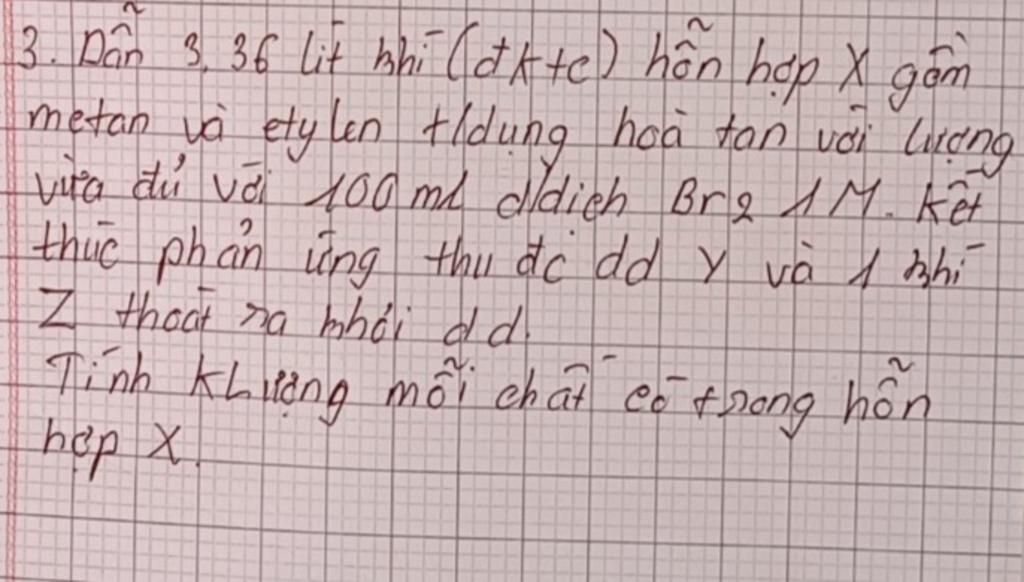 3. Dẫn 3,36 lít khí (đktc) hỗn hợp X gồm
metan và etylen t/dụng hoà tan với lượng
vừa đủ với 100 ml d/dịch Br2 1M. Kết
thúc phản ứng thu đc dd Y và 1 khí
Z thoát ra khỏi dd.
Tính kLượng mỗi chất có trong hỗn
hợp X.